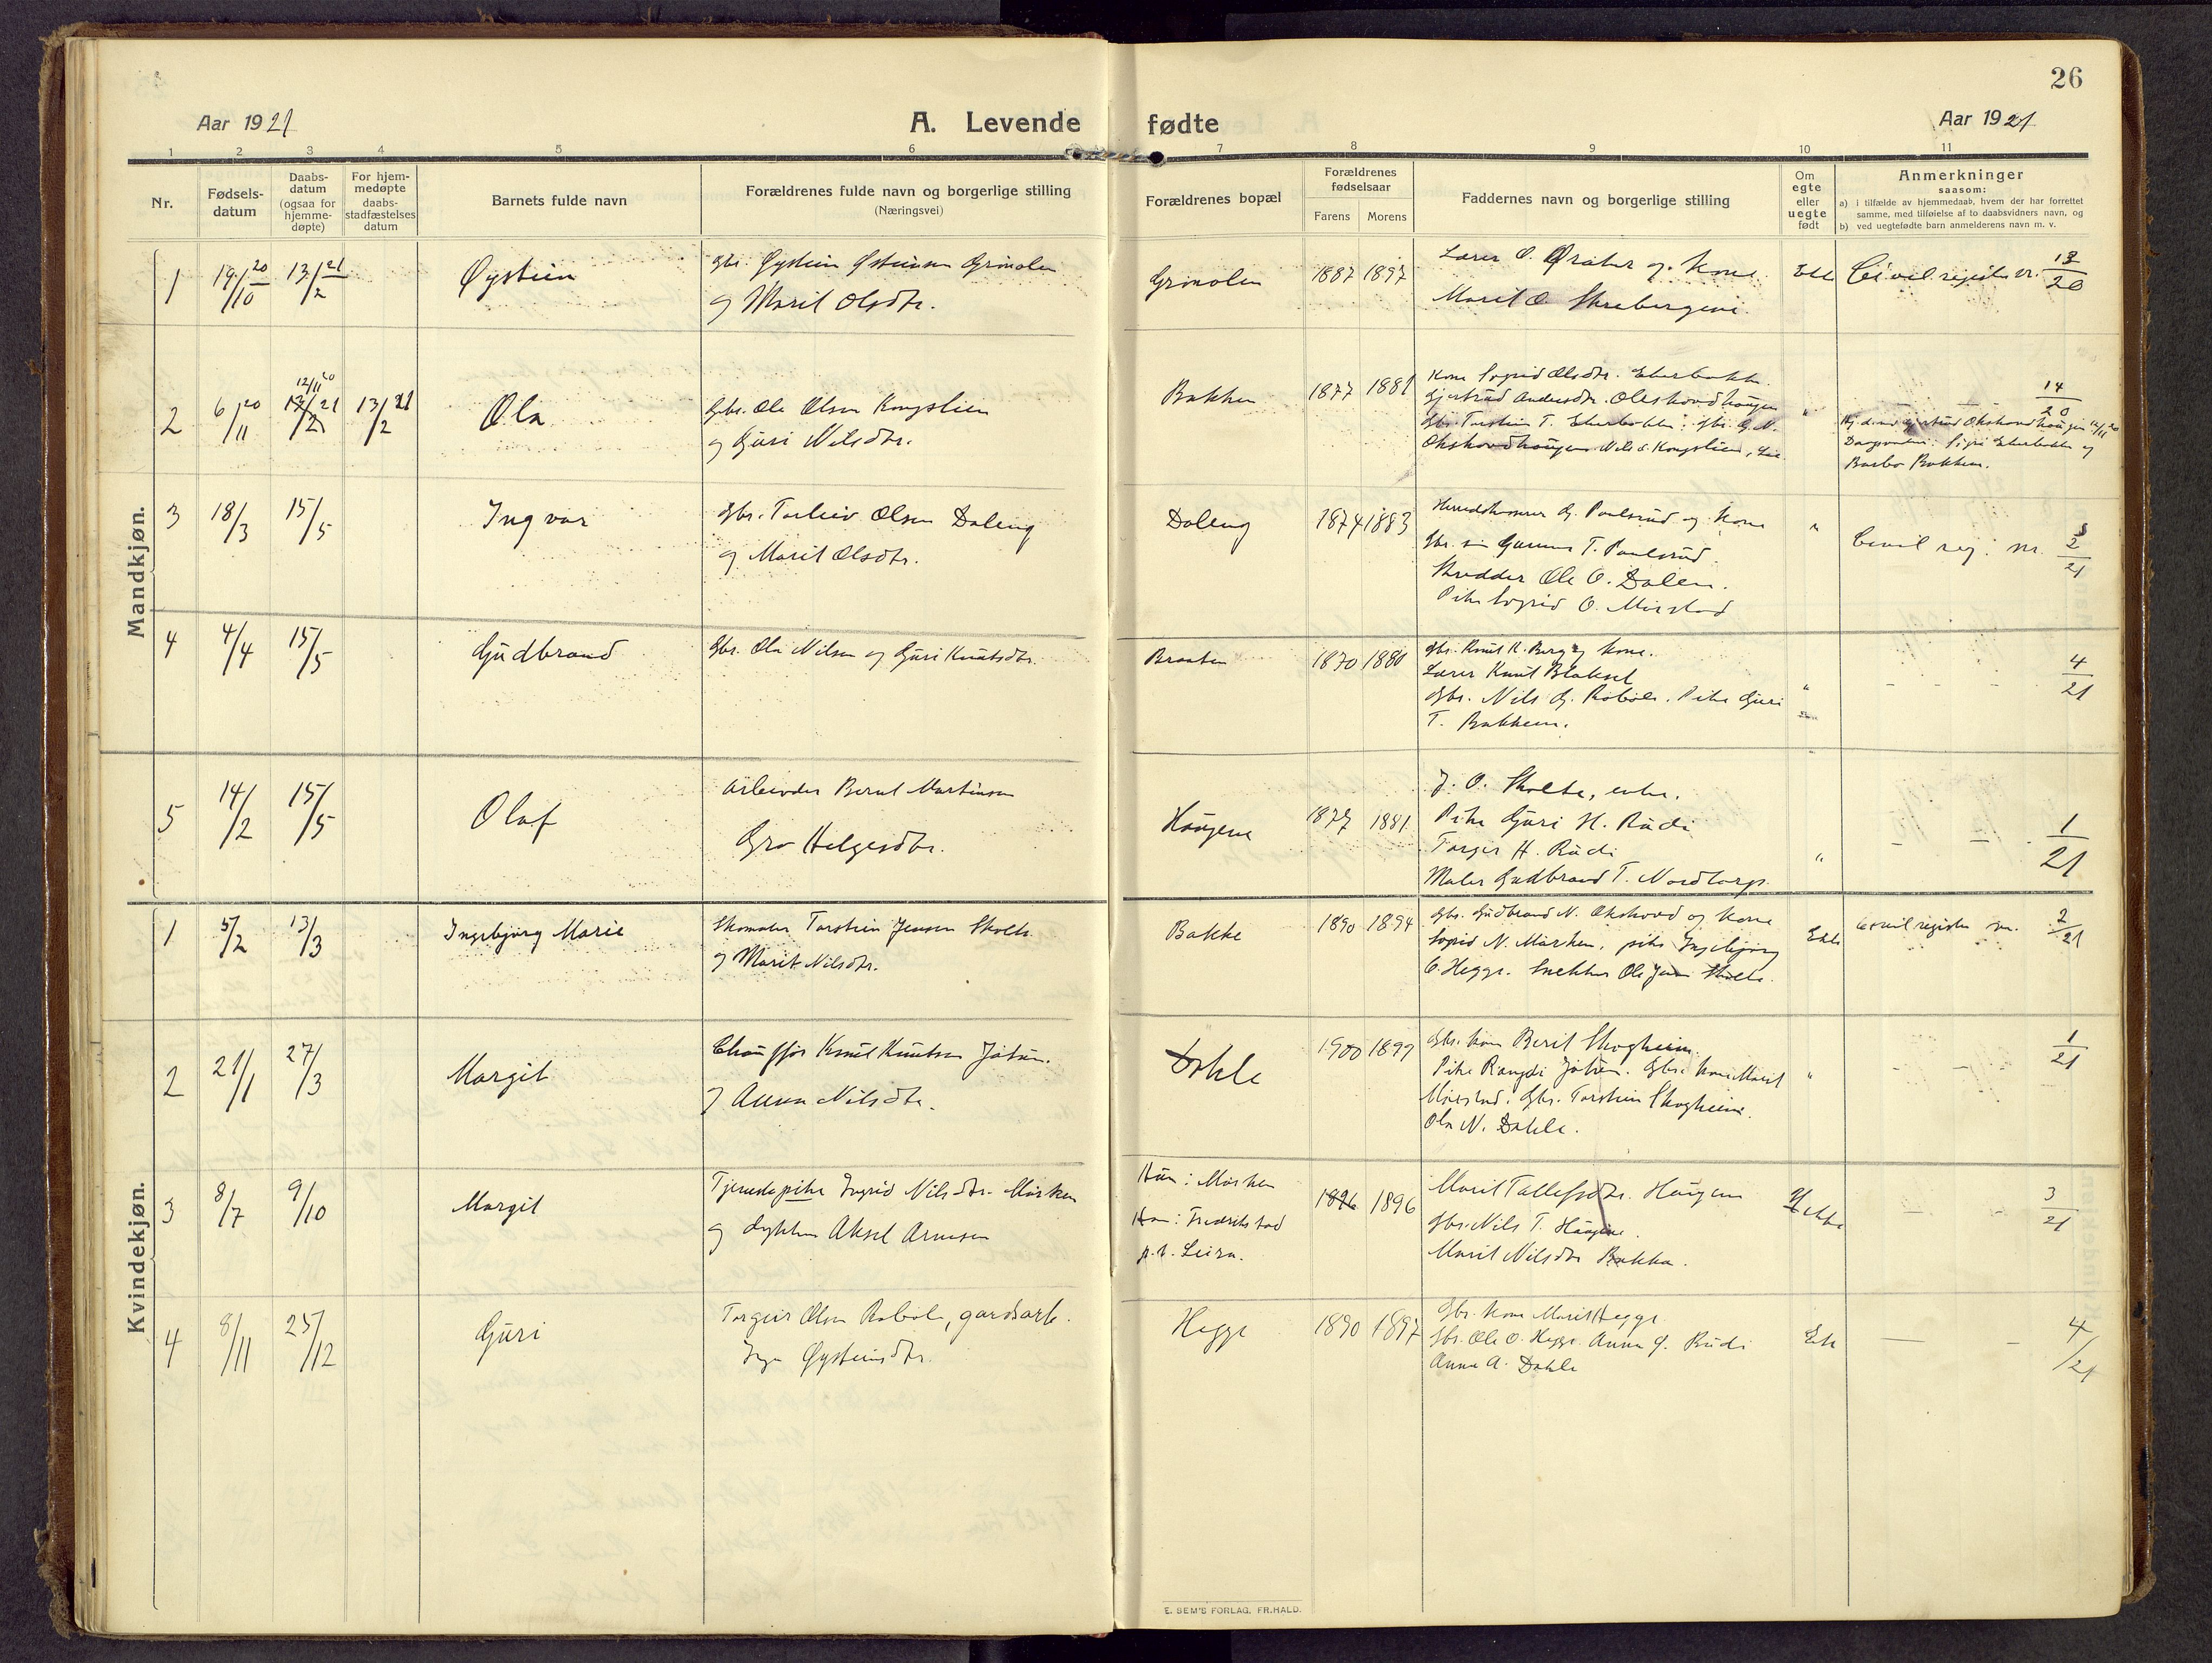 26
Aar 1921 A. Levende fødte Aar 1921
1 2 3 4 5 6 7 8 9 10 11
Nr.
Fødsels-
datum
Daabs-
datum
(ogsaa for
hjemme-
døpte)
For hjem-
medøpte
daabs-
stadfæstelses
datum
Barnets fulde navn
Forældrenes fulde navn og borgerlige stilling
(Næringsvei)
Forældrenes bopæl
Forældrenes
fødselsaar
Farens Morens
Faddernes navn og borgerlige stilling
Om
egte
eller
uegte
født
Anmerkninger
saasom:
a) i tilfælde av hjemmedaab, hvem der har forrettet
samme, med tilføielse af to daabsvidners navn, og
b) ved uegtefødte barn anmelderens navn m. v.
Mandkjøn.
1 19/10 20 13/2 21 Øystein
Gbr. Øystein Østeinsen Grimolen
og Marit Olsdtr.
Grimolen 1887 1897
Lærer O. og Kone.
Marit O.
Ekte Civilregister nr. 13/20
2 6/11 20 12/11 20 13/2 21 13/2 21 Ola
Gbr. Ole Olsen Kongslien
og Guri Nilsdtr.
Bakken 1877 1881
Kone Sigrid Olsdtr.
Gjertrud Andersdtr.
Gbr. Torstein T.
Nils O. Kongslien,
" 14/20
Barbo Bakken.
3 18/3 15/5 Ingvar
Gbr. Torleiv Olsen Daleng
og Marit Olsdtr.
Daleng 1874 1883
G. Paulsrud og Kone
Gbr. T. Paulsrud.
Skredder Ole O. Dalen.
Pike Sigrid O. Mørstad
" Civil reg. nr. 2/21
4 4/4 15/5 Gudbrand
Gbr. Ola Nilsen og Guri Knutsdtr.
Braaten 1870 1880
Gbr. Knut K. Berg og Kone.
Lærer Knut Blaksel
Gbr. Nils G. Robøle. Pike Guri
T. Bakken.
" - - - 4/21
5 14/2 15/5 Olaf
Arbeider Bernt Martinsen
Gro Helgesdtr.
Haugene 1877 1881
J. O. Skolte,
Pike Guri H. Rudi
Torger H. Rudi
Maler Gudbrand T. Nordtorp.
" - - 1/21
Kvindekjøn.
1 5/2 13/3 Ingebjørg Marie
Skomaker Torstein Jensen Skolte
og Marit Nilsdtr.
Bakke 1890 1894
Gbr. Gudbrand N. Okshovd og Kone
Sigrid N. Mørken, pike Ingebjørg
O. Hegge. Snekker Ole Jensen Skolte.
Ekte Civilregister nr. 2/21
2 21/1 27/3 Margit
Chauffør Knut Knutsen Jotun.
og Anna Nilsdtr.
Dahle 1900 1899
Gbr. kone Berit Skogheim.
Pike Rangdi Jotun. Gbr. kone Marit
Mørstad. Gbr. Torstein Skogheim.
Ola N. Dahle.
" - - - 1/21
3 8/7 9/10 Margit
Tjenestepike Ingrid Nilsdtr. Mørken
og Aksel Arnesen
Hun: Mørken
Han: Fredrikstad
p.t. Leira.
1896 1896
Marit Tollefsdtr. Haugen
Gbr. Nils T. Haugene.
Marit Nilsdtr Bakka.
Uekte - - 3/21
4 8/11 25/12 Guri
Torgeir Olsen Robøle, gardsarb.
Inga Øysteinsdtr.
Hegge 1890 1897
Gbr. kone Marit Hegge
Gbr. Ole O. Hegge. Anna G. Rudi
Anna A. Dahle
Ekte - - 4/21
E. SEM'S FORLAG, FR.HALD.